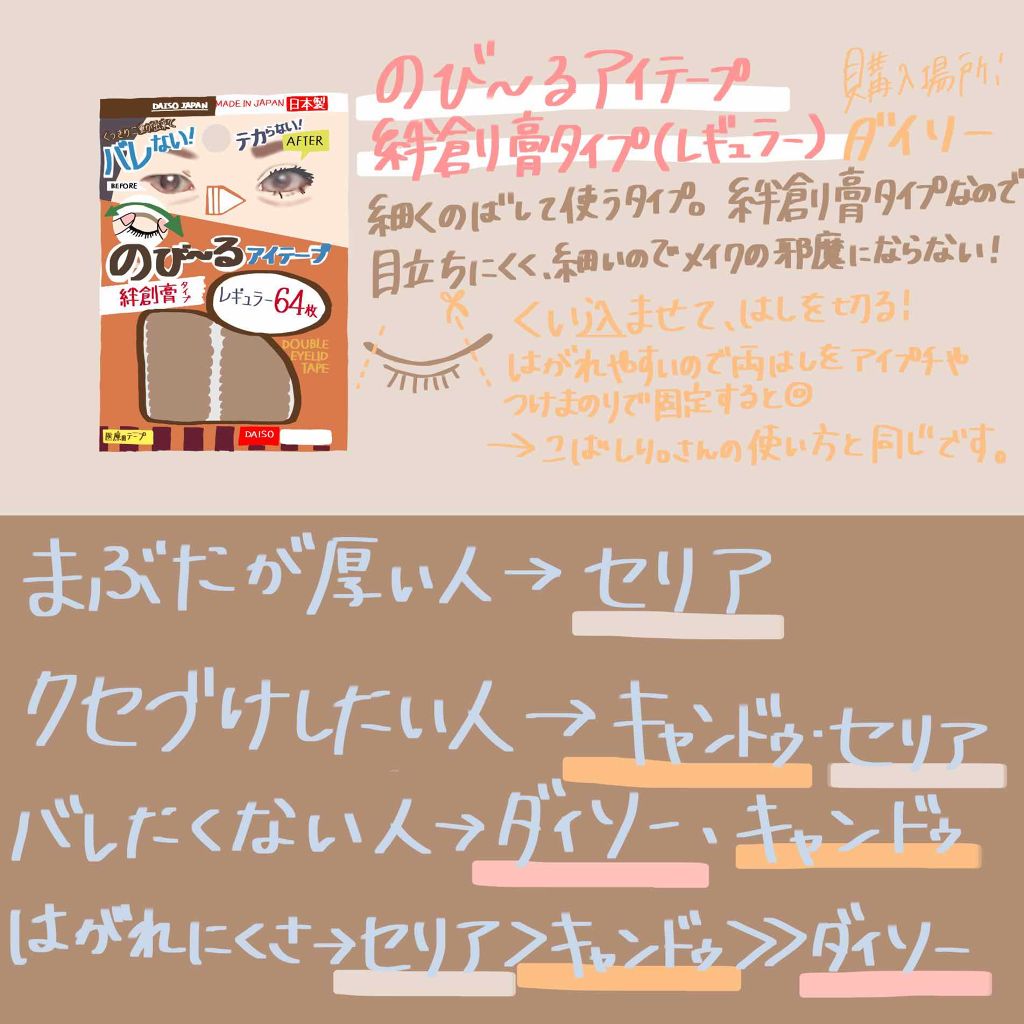 DAISO JAPAN
MADE IN JAPAN
日本製
バレない!
テカらない!
BEFORE
AFTER
のび〜る アイテープ
絆創膏タイプ
レギュラー64枚
DOUBLE
EYELID
TAPE
医療用テープ
DAISO
のび〜るアイテープ
絆創膏タイプ(レギュラー)
購入場所!
ダイソー
細くのばして使うタイプ。絆創膏タイプなので
目立ちにくく、細いのでメイクの邪魔にならない!
くい込ませて、はしを切る!
はがれやすいので両はしをアイプチや
つけまのりで固定すると◎
→こばしり。さんの使い方と同じです。
まぶたが厚い人→セリア
クセづけしたい人→キャンドゥ・セリア
バレたくない人→ダイソー、キャンドゥ
はがれにくさ→セリア>キャンドゥ>>ダイソー